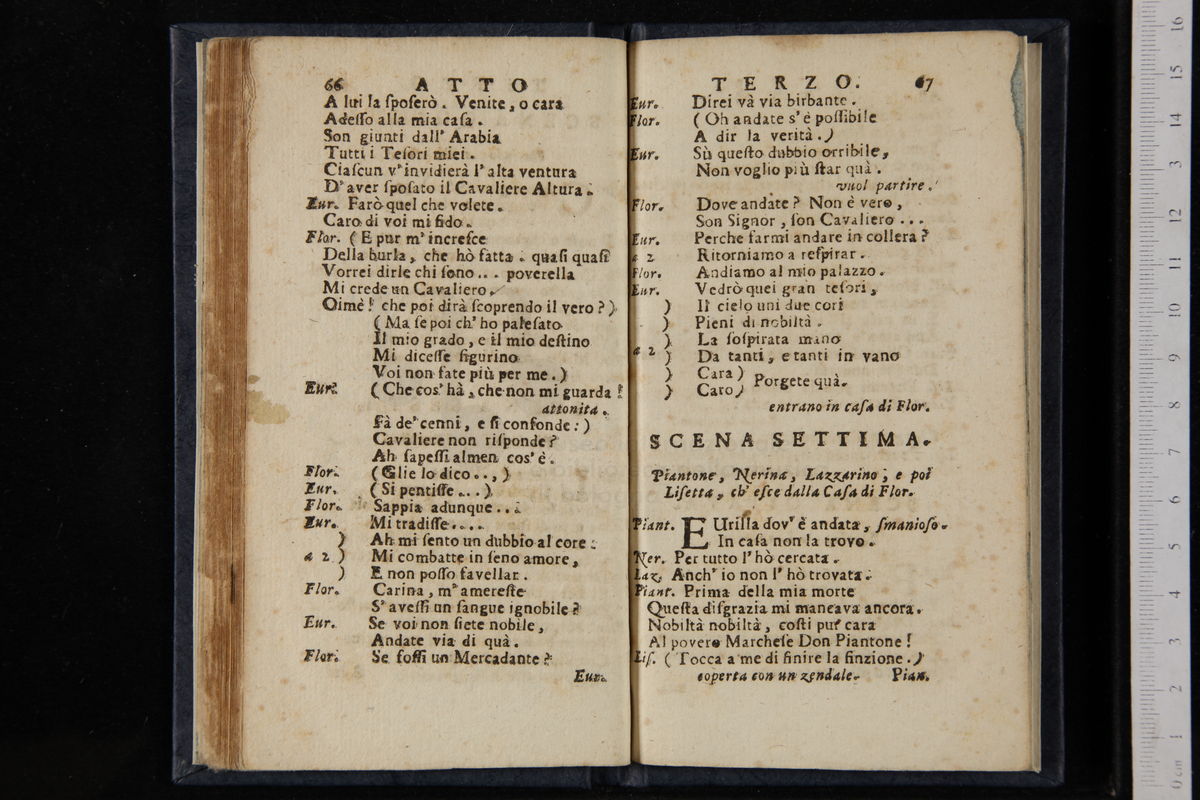 66 ATTO
A lui la ſpoſerò. Venite, o cara
Adeſſo alla mia caſa.
Son giunti dall' Arabia
Tutti i Teſori miei.
Ciaſcun v'invidierà l'alta ventura
D'aver ſpoſato il Cavaliere Altura.
Eur. Farò quel che volete.
Caro di voi mi fido.
Flor. (E pur m'increſce
Della burla, che hò fatta. quaſi quaſi
Vorrei dirle chi ſono... poverella
Mi crede un Cavaliero.
Oimè! che poi dirà ſcoprendo il vero?)
(Ma ſe poi ch'ho paleſato
Il mio grado, e il mio deſtino
Mi diceſſe figurino
Voi non fate più per me.)
Eur. (Che cos' hà, che non mi guarda?
attonita.
Fà de' cenni, e ſi confonde:)
Cavaliere non riſponde?
Ah ſapeſſi almen cos' è.
Flor. (Glie lo dico..,)
Eur. (Si pentiſſe...)
Flor. Sappia adunque...
Eur. Mi tradiſſe....
) Ah mi ſento un dubbio al core:
a 2 ) Mi combatte in ſeno amore,
) E non poſſo favellar.
Flor. Carina, m'amereſte
S'aveſſi un ſangue ignobile?
Eur. Se voi non ſiete nobile,
Andate via di quà.
Flor. Se foſſi un Mercadante?
Eur.
TERZO. 67
Eur. Direi và via birbante.
Flor. (Oh andate s'è poſſibile
A dir la verità.)
Eur. Sù queſto dubbio orribile,
Non voglio più ſtar quà.
vuol partire.
Flor. Dove andate? Non è vero,
Son Signor, ſon Cavaliero...
Eur. Perche farmi andare in collera?
a 2 Ritorniamo a reſpirar.
Flor. Andiamo al mio palazzo.
Eur. Vedrò quei gran teſori,
) Il cielo uni due cori
) Pieni di nobiltà.
) La ſoſpirata mano
a 2 ) Da tanti, e tanti in vano
) Cara) Porgete quà.
) Caro)
entrano in caſa di Flor.
SCENA SETTIMA.
Piantone, Nerina, Lazzarino, e poi
Liſetta, ch' eſce dalla Caſa di Flor.
Piant. EUrilla dov' è andata, ſmanioſo.
In caſa non la trovo.
Ner. Per tutto l'hò cercata.
Laz. Anch' io non l'hò trovata.
Piant. Prima della mia morte
Queſta diſgrazia mi mancava ancora.
Nobiltà nobiltà, coſti pur cara
Al povero Marcheſe Don Piantone!
Liſ. (Tocca a me di finire la finzione.)
coperta con un zendale. Pian.